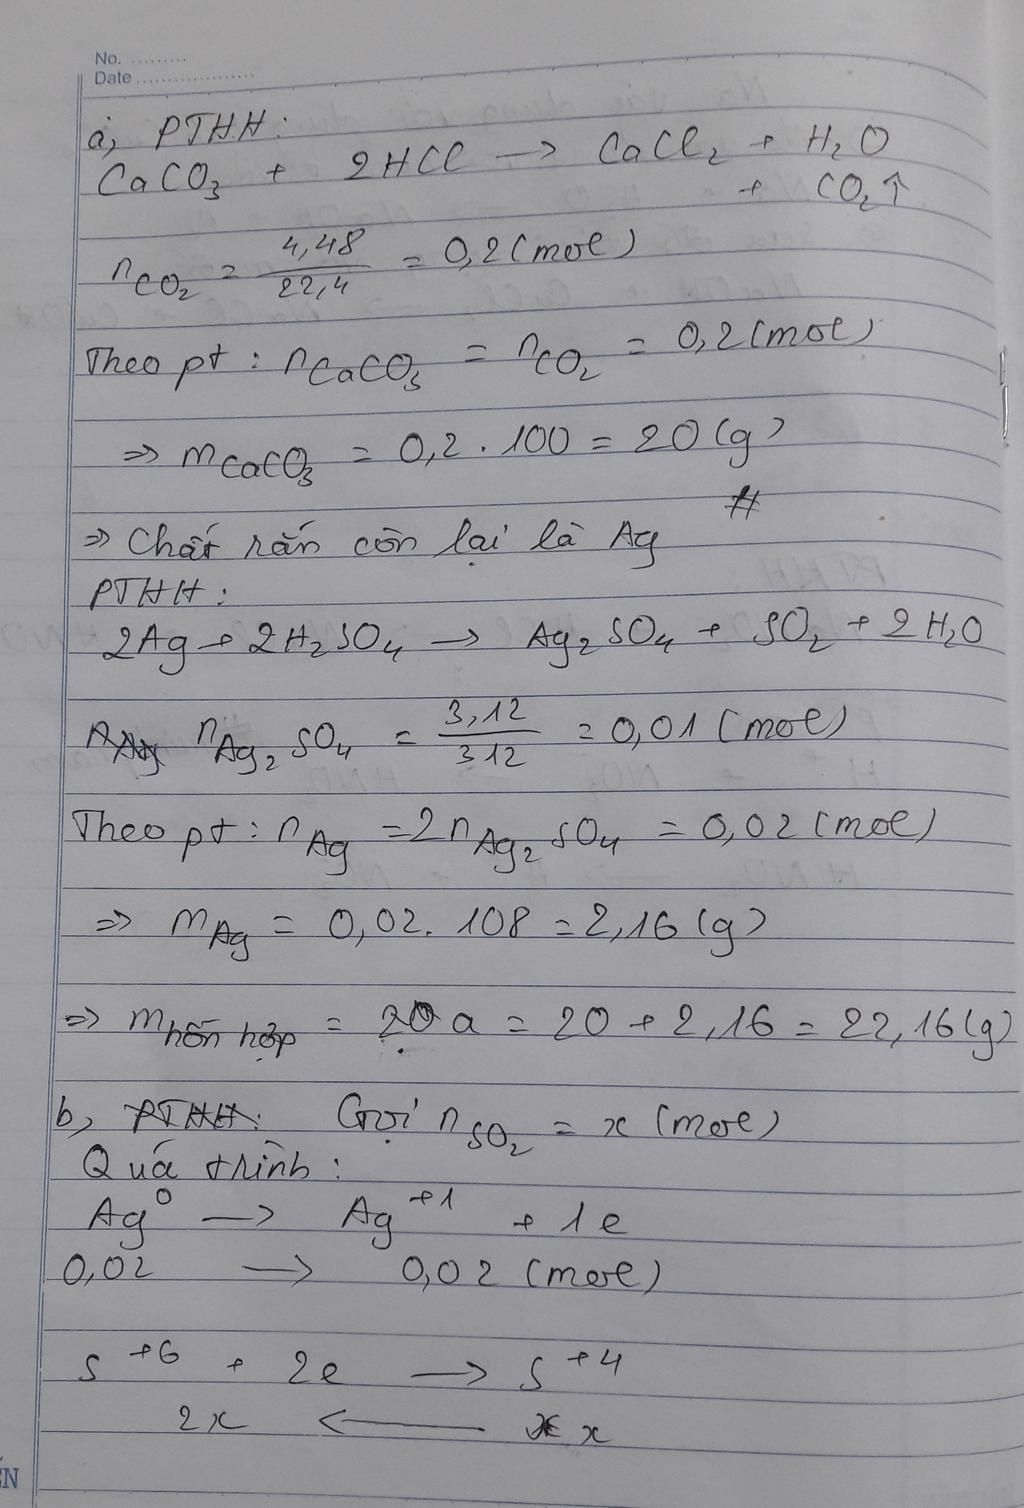 No. .........
Date ...................
a, PTHH:
CaCO₃ + 2HCl → CaCl₂ + H₂O
+ CO₂↑
nCO₂ = 4,48/22,4 = 0,2 (mol)
Theo pt: nCaCO₃ = nCO₂ = 0,2 (mol)
⇒ mCaCO₃ = 0,2 . 100 = 20 (g)
#
⇒ Chất rắn còn lại là Ag
PTHH:
2Ag + 2H₂SO₄ → Ag₂SO₄ + SO₂ + 2H₂O
nAg₂SO₄ = 3,12/312 = 0,01 (mol)
Theo pt: nAg = 2nAg₂SO₄ = 0,02 (mol)
⇒ mAg = 0,02. 108 = 2,16 (g)
⇒ mhỗn hợp = a = 20 + 2,16 = 22,16 (g)
b, PTHH: Gọi nSO₂ = x (mol)
Quá trình:
Ag⁰ → Ag⁺¹ + 1e
0,02 → 0,02 (mol)
S⁺⁶ + 2e → S⁺⁴
2x ← x
ẾN